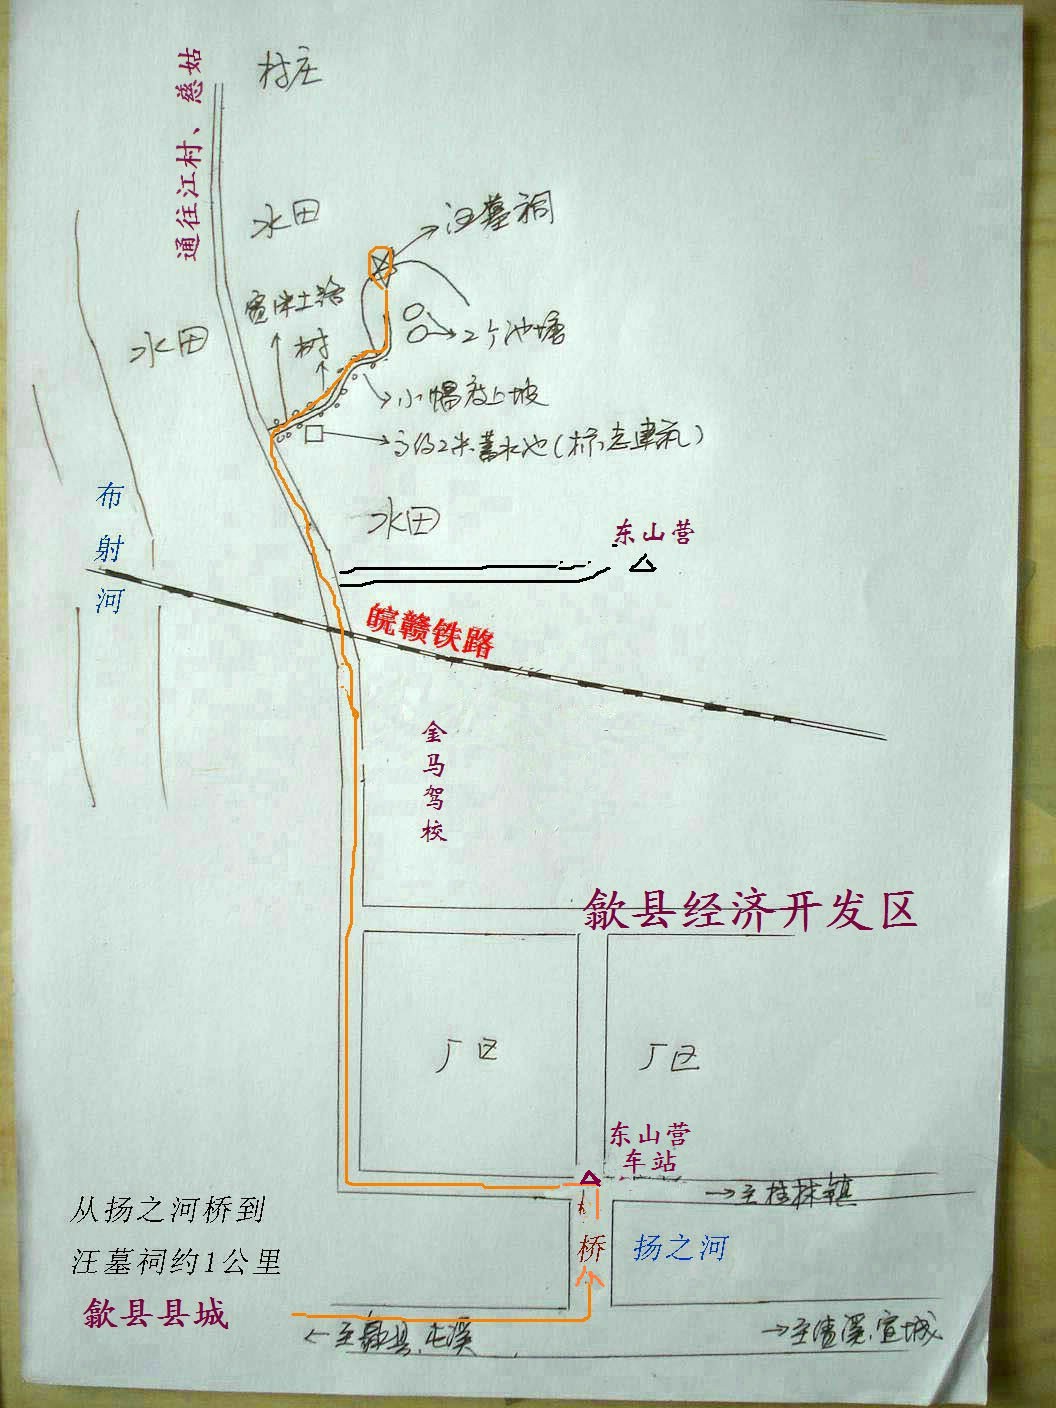 村庄
通往江村、慈姑
水田
汪墓祠
宽阔土路
树
2个池塘
水田
小幅度上坡
高约2米蓄水池(标志建筑)
布射河
水田
东山营
皖赣铁路
金马驾校
歙县经济开发区
厂区
厂区
东山营
车站
→至桂林镇
从扬之河桥到
汪墓祠约1公里
桥
扬之河
歙县县城
←至歙县、屯溪
→至清溪、宣城